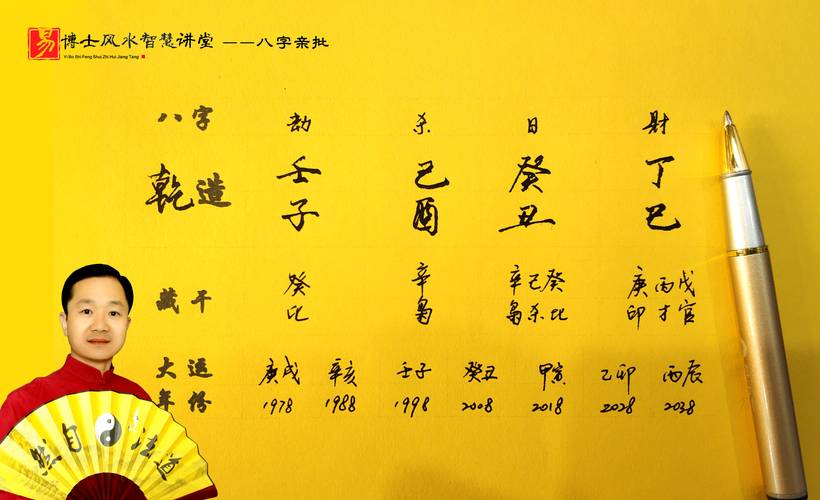 易 博士风水智慧讲堂 ——八字亲批
Yi Bo Shi Feng Shui Zhi Hui Jiang Tang
八字 劫 杀 日 財
乾造 壬 己 癸 丁
子 酉 丑 巳
藏干 癸 辛 辛己癸 庚丙戊
比 枭 枭杀比 印才官
大运 庚戌 辛亥 壬子 癸丑 甲寅 乙卯 丙辰
年份 1978 1988 1998 2008 2018 2028 2038
然自法道